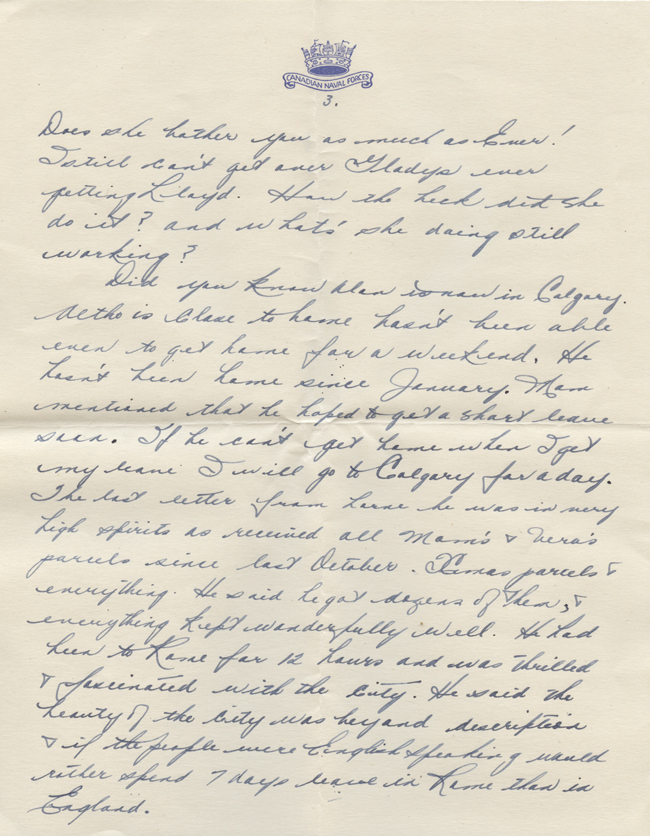 CANADIAN NAVAL FORCES
3.
Does she bother you as much as Ever!
I still can't get over Gladys ever
getting Lloyd. How the heck did she
do it? and what's she doing still
working?
Did you know Alan is now in Calgary.
Altho is close to home hasn't been able
even to get home for a weekend. He
hasn't been home since January. Mom
mentioned that he hoped to get a short leave
soon. If he can't get home when I get
my leave I will go to Calgary for a day.
The last letter from Lorne he was in very
high spirits as received all Mom's & Vera's
parcels since last October. Xmas parcels &
everything. He said he got dozens of them, &
everything kept wonderfully well. He had
been to Rome for 12 hours and was thrilled
& fascinated with the city. He said the
beauty of the city was beyond description
& if the people were English speaking would
rather spend 7 days leave in Rome than in
England.